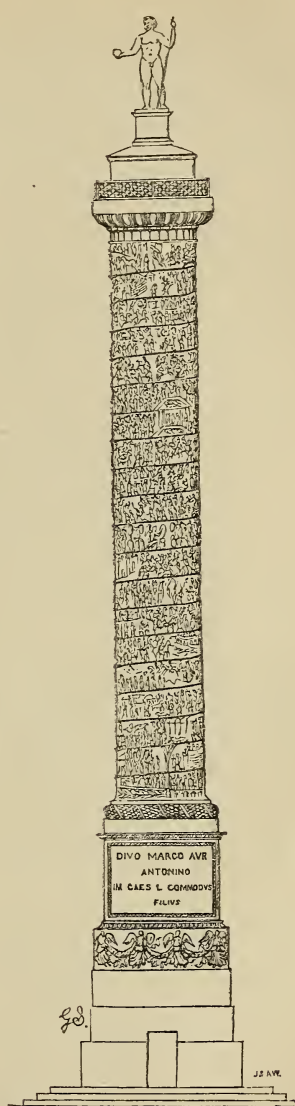 DIVO MARCO AVR
ANTONINO
IM CAES L COMMODVS
FILIVS
G.S.